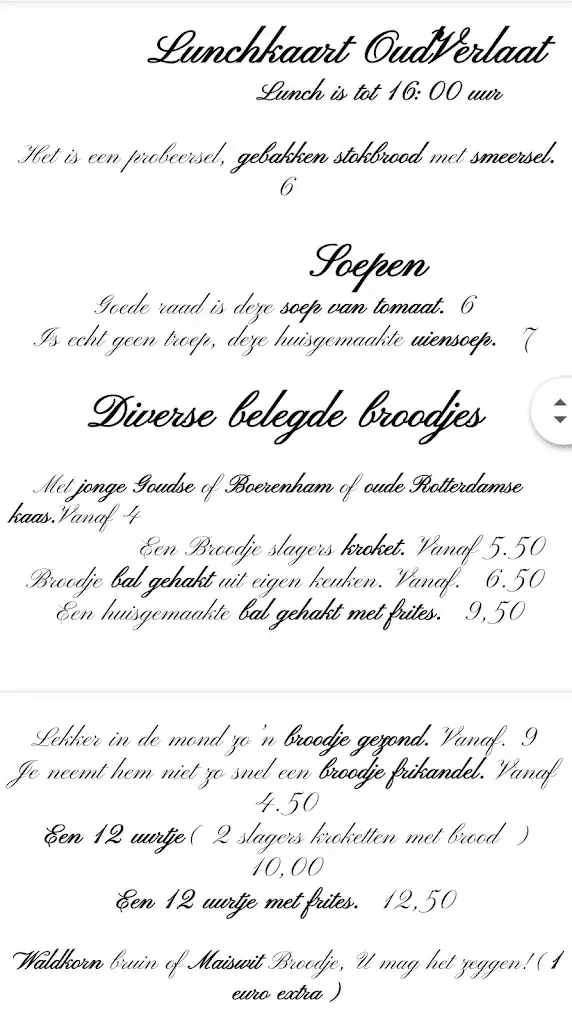 Lunchkaart OudVerlaat
Lunch is tot 16:00 uur
Het is een probeersel, gebakken stokbrood met smeersel.
6
Soepen
Goede raad is deze soep van tomaat. 6
Is echt geen troep, deze huisgemaakte uiensoep. 7
Diverse belegde broodjes
Met jonge Goudse of Boerenham of oude Rotterdamse
kaas.Vanaf 4
Een Broodje slagers kroket. Vanaf 5.50
Broodje bal gehakt uit eigen keuken. Vanaf. 6.50
Een huisgemaakte bal gehakt met frites. 9,50
Lekker in de mond zo 'n broodje gezond. Vanaf. 9
Je neemt hem niet zo snel een broodje frikandel. Vanaf
4.50
Een 12 uurtje ( 2 slagers kroketten met brood )
10,00
Een 12 uurtje met frites. 12,50
Waldkorn bruin of Maiswit Broodje, U mag het zeggen! ( 1
euro extra )